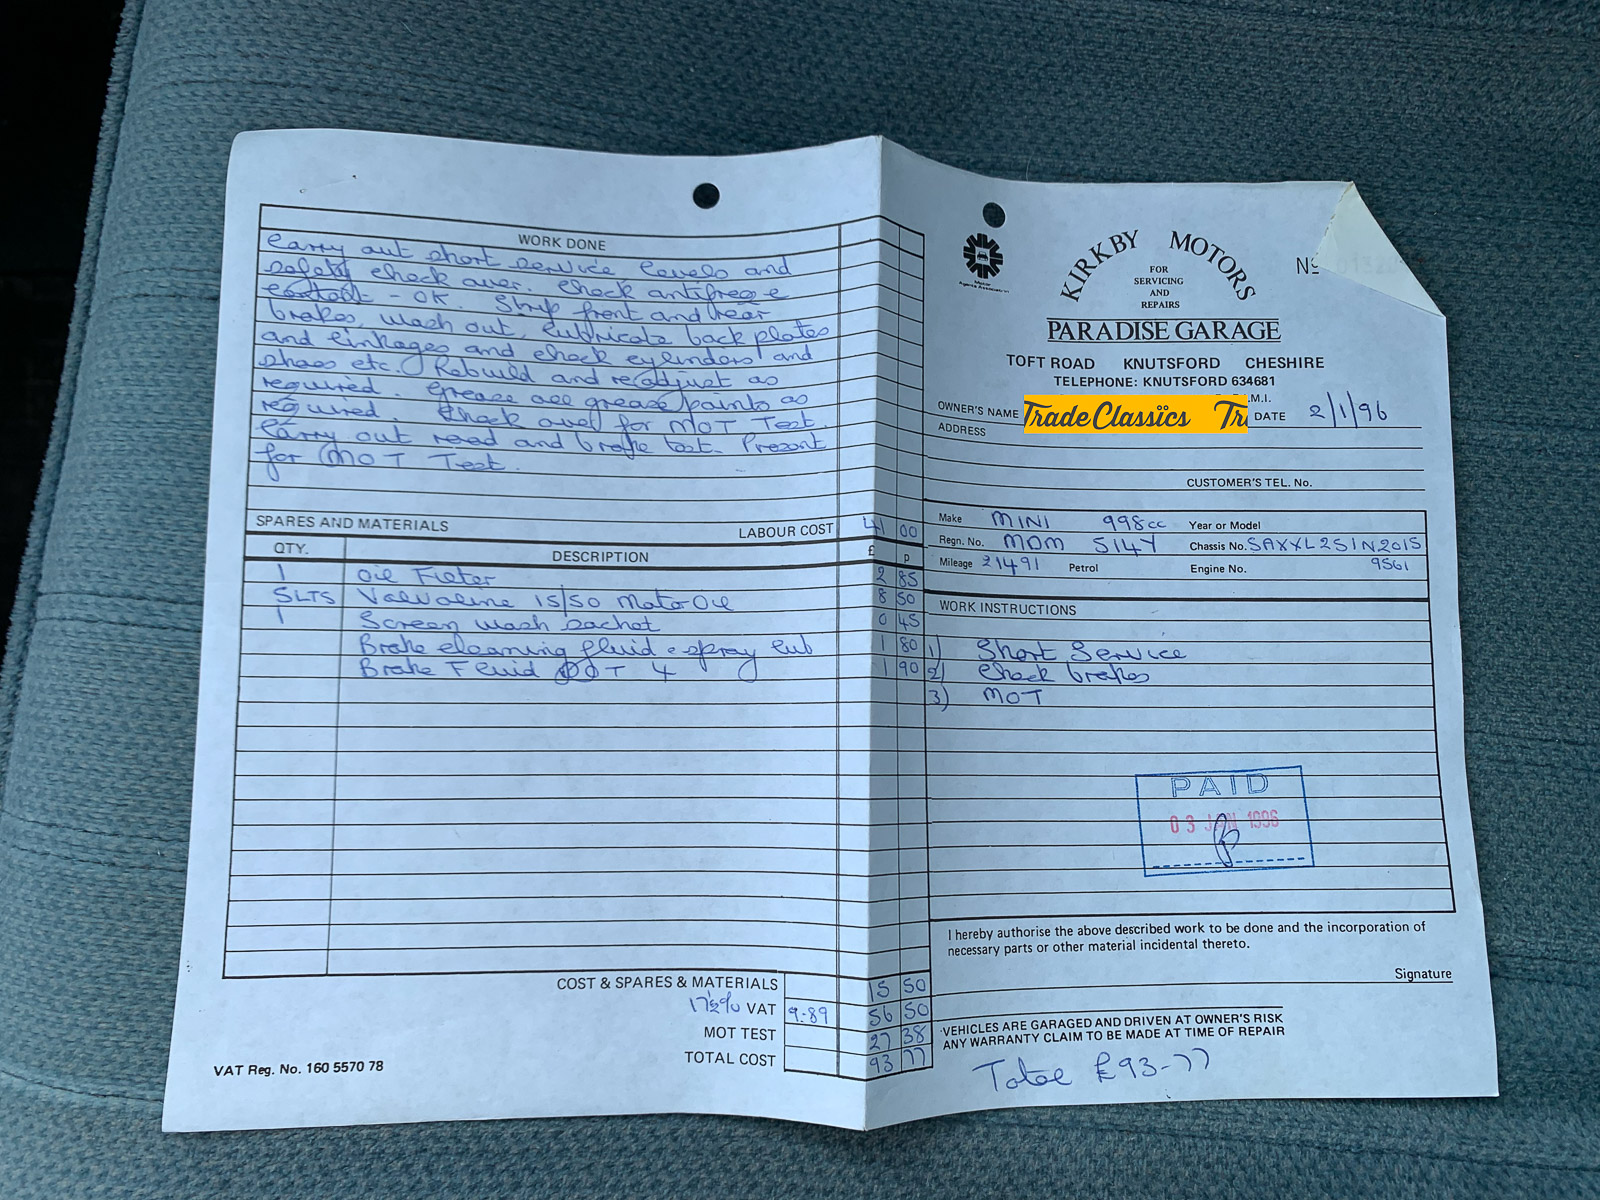 WORK DONE
Carry out short service levels and
safety check over. Check antifreeze
content - OK Strip front and rear
brakes, wash out, lubricate back plates
and linkages and check cylinders and
shoes etc. Rebuild and readjust as
required. Grease all grease points as
required. Check over for MOT Test.
Carry out road and brake test. Present
for MOT Test.
SPARES AND MATERIALS LABOUR COST 41 00
QTY. DESCRIPTION £ p
1 Oil Filter 2 85
5LTS Valvoline 15/50 Motor Oil 8 50
1 Screen wash sachet 0 45
Brake cleaning fluid + spray lub 1 80
Brake Fluid DOT 4 1 90
COST & SPARES & MATERIALS 15 50
17½% VAT 9.89 56 50
MOT TEST 27 38
TOTAL COST 93 77
VAT Reg. No. 160 5570 78
Motor
Agents Association
KIRKBY MOTORS
FOR
SERVICING
AND
REPAIRS
No
PARADISE GARAGE
TOFT ROAD KNUTSFORD CHESHIRE
TELEPHONE: KNUTSFORD 634681
M.I.
OWNER'S NAME TradeClassics Tra DATE 2/1/96
ADDRESS
CUSTOMER'S TEL. No.
Make MINI 998cc Year or Model
Regn. No. MDM 514Y Chassis No. SAXXL2S1N2015
Mileage 21491 Petrol Engine No. 9561
WORK INSTRUCTIONS
1) Short Service
2) Check brakes
3) MOT
PAID
03 JAN 1996
I hereby authorise the above described work to be done and the incorporation of
necessary parts or other material incidental thereto.
Signature
VEHICLES ARE GARAGED AND DRIVEN AT OWNER'S RISK
ANY WARRANTY CLAIM TO BE MADE AT TIME OF REPAIR
Total £93-77